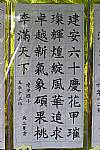 建安六十慶花甲璀
璨輝煌綻風華追求
卓越新氣象碩果桃
李滿天下